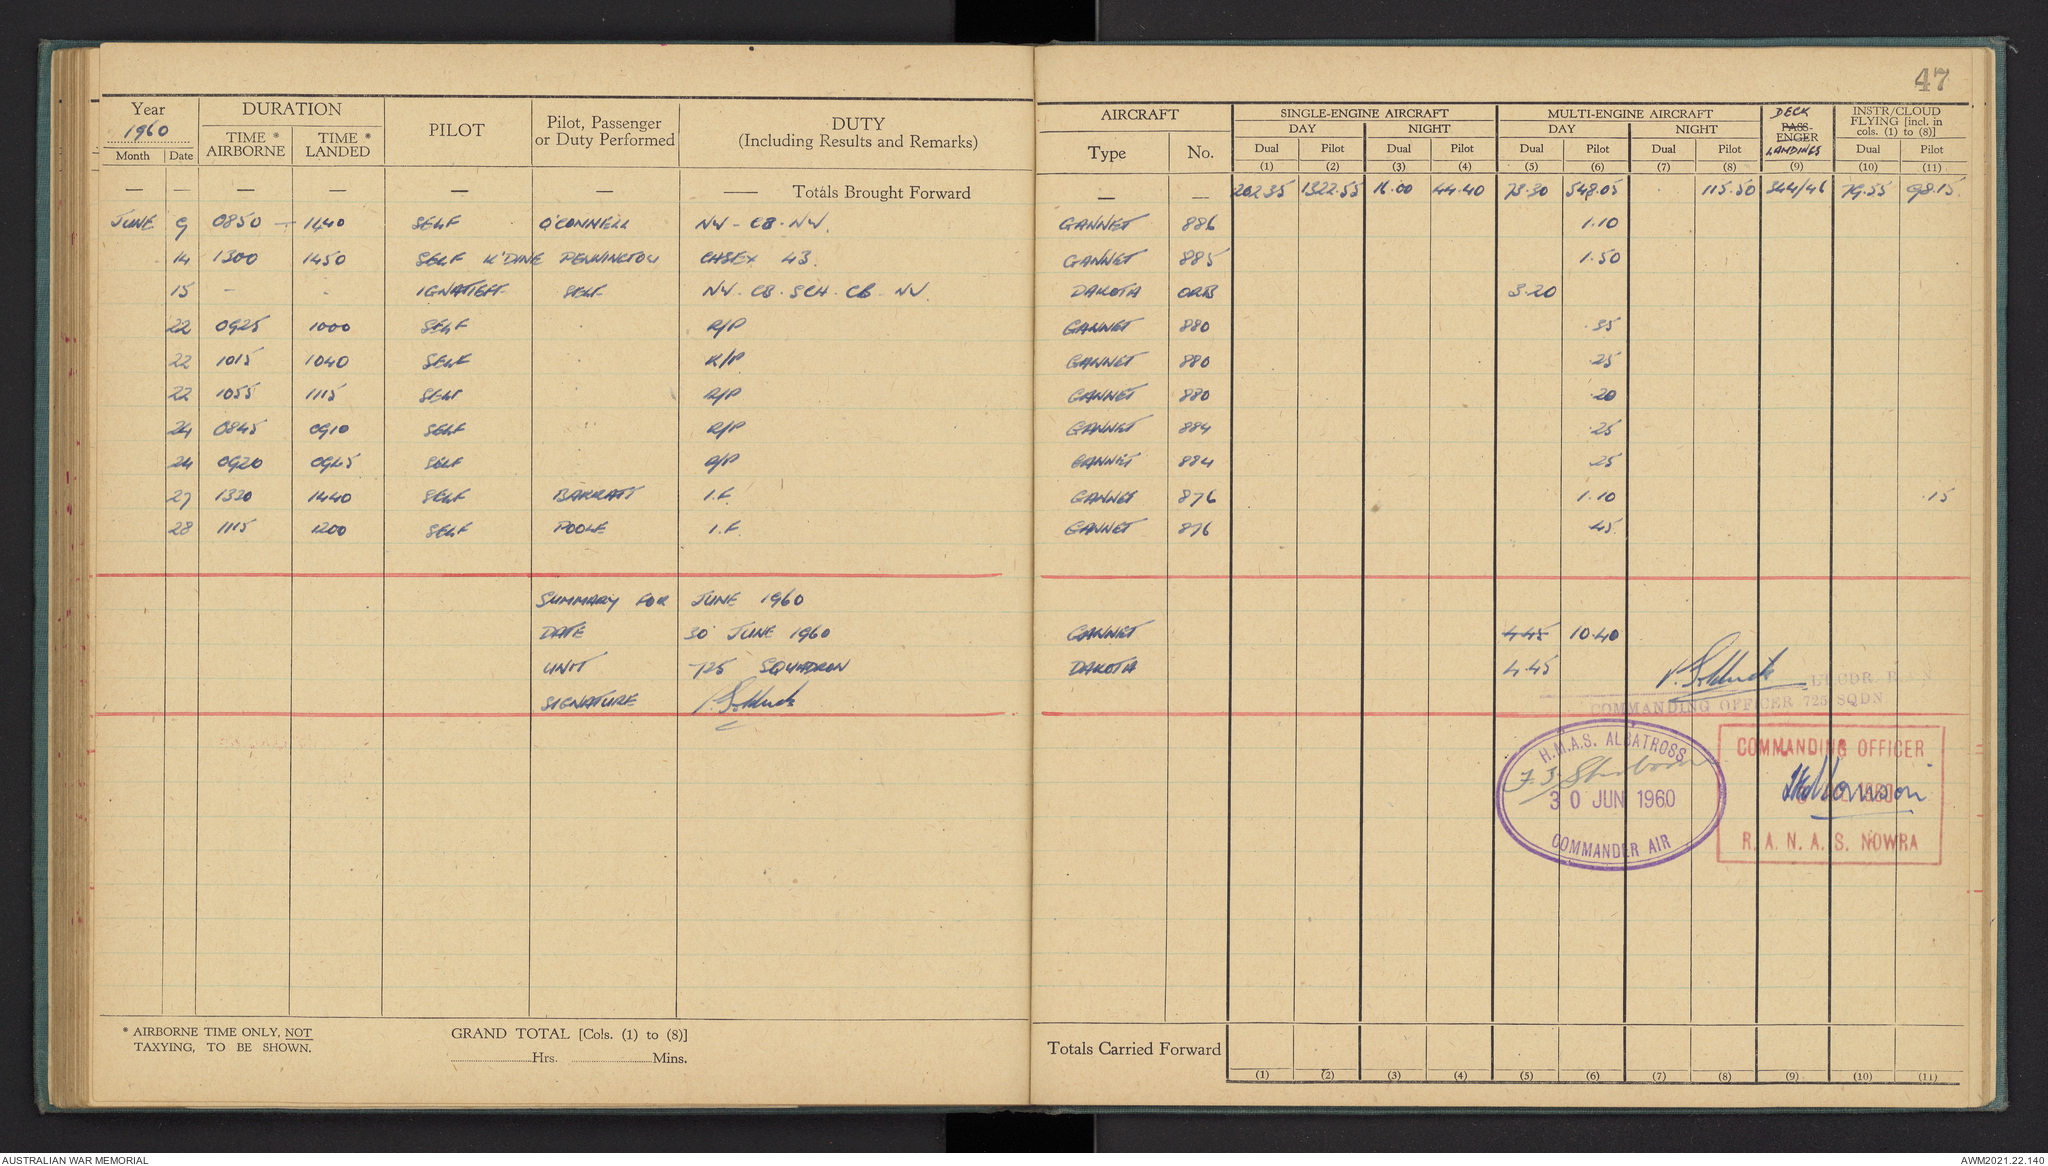 47
Year 1960 DURATION PILOT Pilot, Passenger or Duty Performed DUTY (Including Results and Remarks) AIRCRAFT SINGLE-ENGINE AIRCRAFT MULTI-ENGINE AIRCRAFT DECK PASSENGER LANDINGS INSTR/CLOUD FLYING [incl. in cols. (1) to (8)]
Month Date TIME * AIRBORNE TIME * LANDED Type No. DAY NIGHT DAY NIGHT
Dual Pilot Dual Pilot Dual Pilot Dual Pilot Dual Pilot
(1) (2) (3) (4) (5) (6) (7) (8) (9) (10) (11)
— — — — — — — Totals Brought Forward — — 202.35 1322.55 16.00 44.40 73.30 548.05 115.50 344/46 79.55 98.15
JUNE 9 0850 – 1140 SELF O'CONNELL NW - CB - NW. GANNET 886 1.10
14 1300 1450 SELF K'DINE PENNINGTON CASEX 43. GANNET 885 1.50
15 - - IGNATIEFF SELF NW - CB - SCH - CB - NW. DAKOTA 3.20
22 0925 1000 SELF R/P GANNET 880 .35
22 1015 1040 SELF R/P GANNET 880 .25
22 1055 1115 SELF R/P GANNET 880 .20
24 0845 0910 SELF R/P GANNET 884 .25
24 0920 0945 SELF R/P GANNET 884 .25
27 1330 1440 SELF BARRATT I.F. GANNET 876 1.10 .15
28 1115 1200 SELF POOLE I.F. GANNET 876 .45
SUMMARY FOR JUNE 1960
DATE 30 JUNE 1960 GANNET 4.45 10.40
UNIT 725 SQUADRON DAKOTA 4.45
SIGNATURE
LT. CDR. R.A.N.
COMMANDING OFFICER 725 SQDN
H.M.A.S. ALBATROSS
30 JUN 1960
COMMANDER AIR
COMMANDING OFFICER
R. A. N. A. S. NOWRA
* AIRBORNE TIME ONLY, NOT
TAXYING, TO BE SHOWN.
GRAND TOTAL [Cols. (1) to (8)]
Hrs. Mins.
Totals Carried Forward
(1) (2) (3) (4) (5) (6) (7) (8) (9) (10) (11)
AUSTRALIAN WAR MEMORIAL AWM2021.22.140